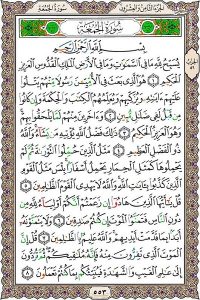 الجزء الثامن والعشرون سورة الجمعة
سورة الجمعة
بسم الله الرحمن الرحيم
يسبح لله ما في السموت وما في الأرض الملك القدوس العزيز
الحكيم ١ هو الذي بعث في الأمين رسولا منهم يتلوا
عليهم ءايته ويزكيهم ويعلمهم الكتب والحكمة وإن كانوا
من قبل لفي ضلل مبين ٢ وءاخرين منهم لما يلحقوا بهم
وهو العزيز الحكيم ٣ ذلك فضل الله يؤتيه من يشاء والله
ذو الفضل العظيم ٤ مثل الذين حملوا التورىة ثم لم
يحملوها كمثل الحمار يحمل أسفارا بئس مثل القوم
الذين كذبوا بءايت الله والله لا يهدي القوم الظلمين ٥
قل يأيها الذين هادوا إن زعمتم أنكم أولياء لله من
دون الناس فتمنوا الموت إن كنتم صدقين ٦ ولا يتمنونه
أبدا بما قدمت أيديهم والله عليم بالظلمين ٧ قل إن
الموت الذي تفرون منه فإنه ملقيكم ثم تردون
إلى علم الغيب والشهدة فينبئكم بما كنتم تعملون ٨
٥٥٣